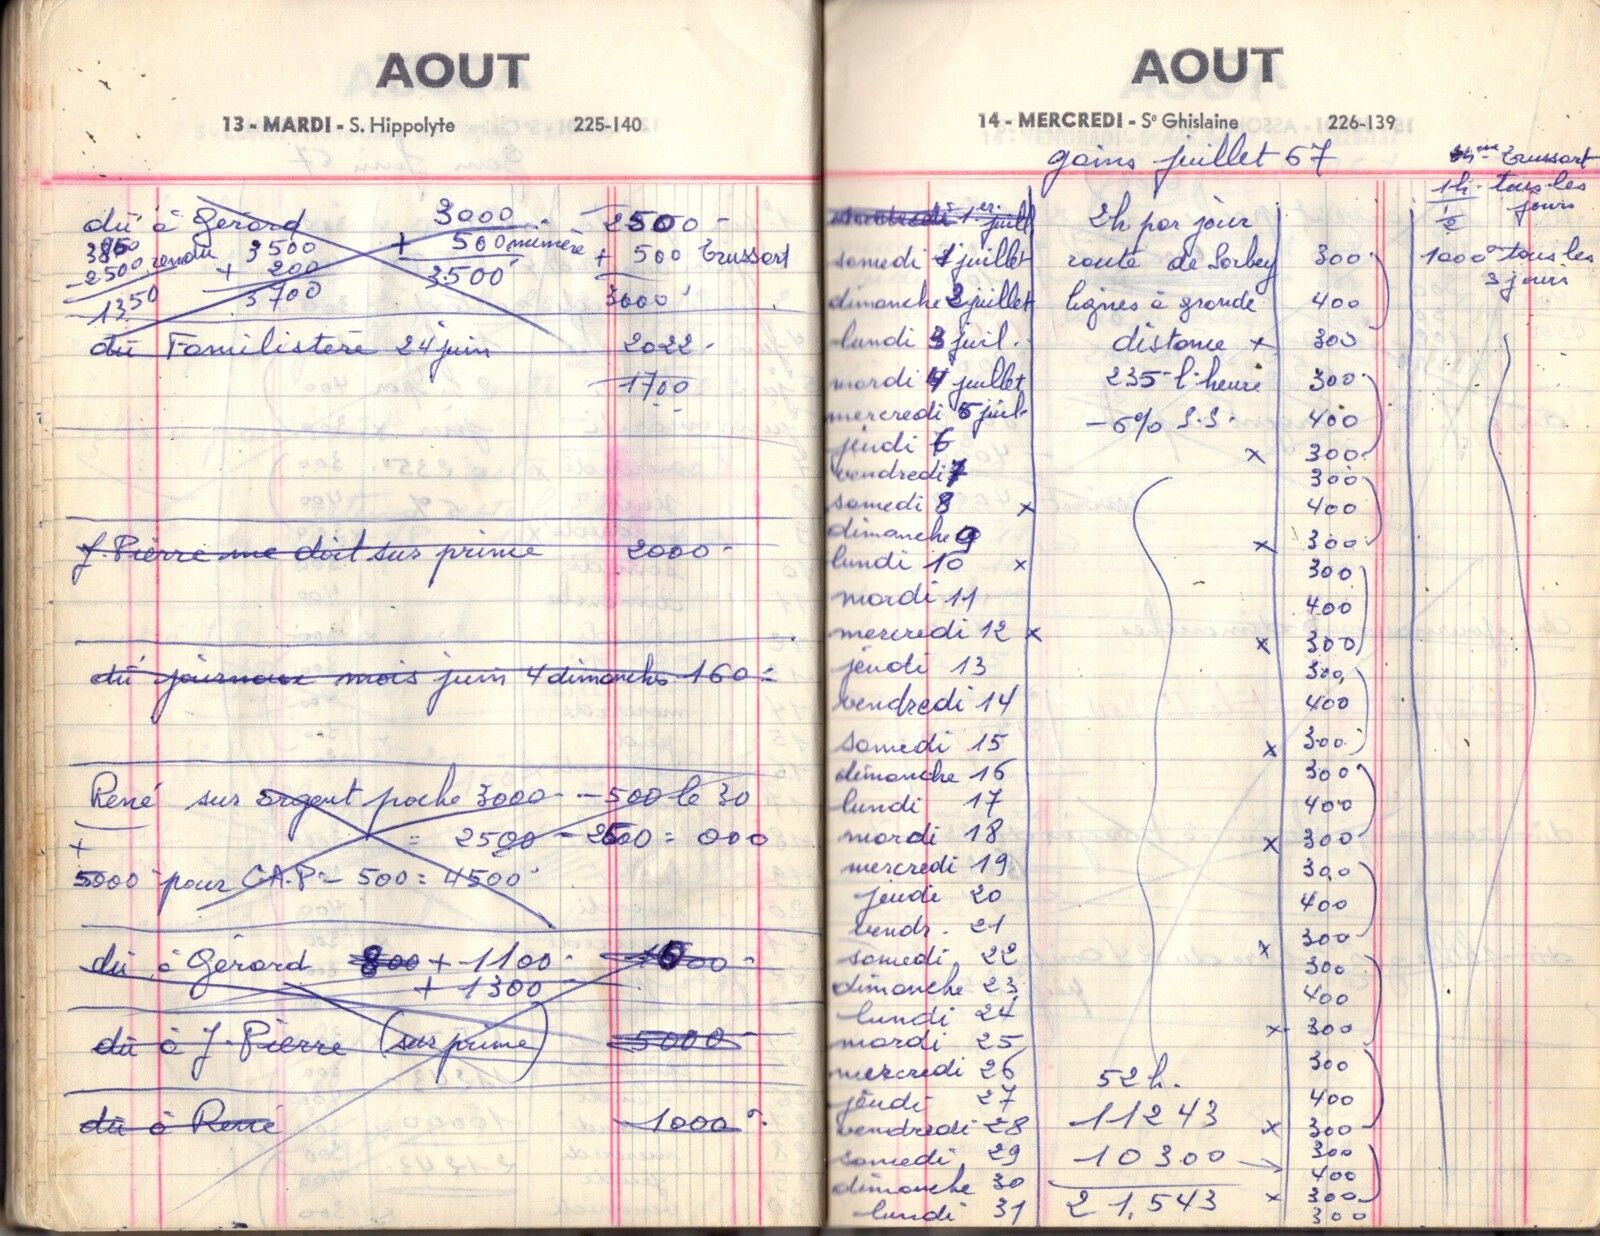 AOUT
13 - MARDI - S. Hippolyte 225-140
dû à Gérard 3000 2500
+ 500 mémère + 500 Trussart
3500 3500 3000
- 2500 rendu + 200
1350 3700
dû Familistère 24 juin 2022
1700
J. Pierre me doit sur prime 2000
dû journaux mois juin 4 dimanches 160
René sur argent poche 3000 - 500 le 30
+ = 2500 - 2500 = 000
5000 pour C.A.P - 500 = 4500
dû à Gérard 800 + 1100
+ 1300
dû à J. Pierre (sur prime) 5000
dû à René 1000
AOUT
14 - MERCREDI - Se Ghislaine 226-139
gains juillet 67
Mme Trussart
1h. tous les
1/2 jours
1er juill 2h par jour
samedi 1 juillet route de Sorbey 300 1000 tous les
3 jours
dimanche 2 juillet lignes à grande 400
lundi 3 juil. distance x 300
mardi 4 juillet 235 l'heure 300
mercredi 5 juil - 6% S.S. 400
jeudi 6 x 300
vendredi 7 300
samedi 8 x 400
dimanche 9 x 300
lundi 10 x 300
mardi 11 400
mercredi 12 x x 300
jeudi 13 300
vendredi 14 400
samedi 15 x 300
dimanche 16 300
lundi 17 400
mardi 18 x 300
mercredi 19 300
jeudi 20 400
vendr. 21 x 300
samedi 22 300
dimanche 23 400
lundi 24 x 300
mardi 25 300
mercredi 26 52h.
jeudi 27 400
vendredi 28 11243 x 300
samedi 29 10300 300
400
dimanche 30 21.543 x 300
lundi 31 300